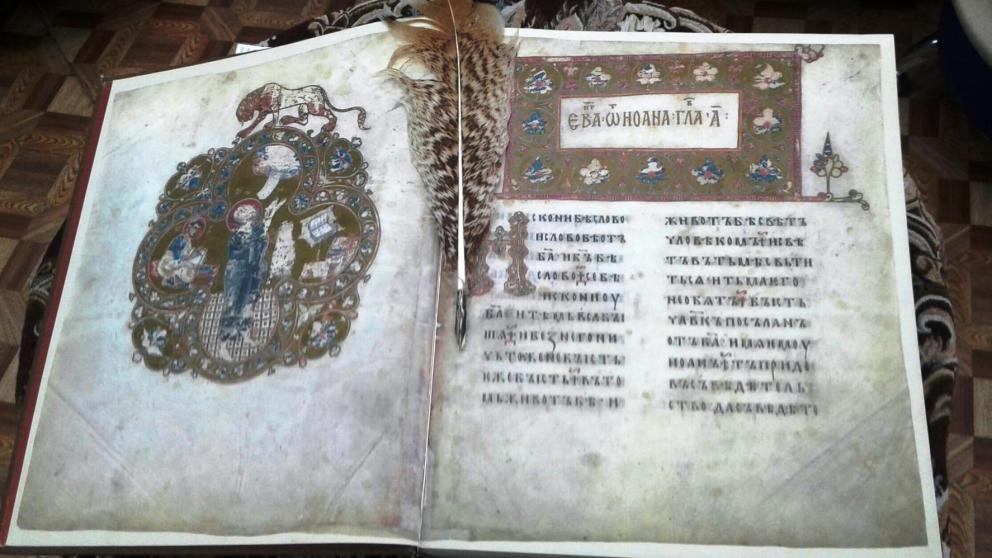 ЕВА · Ѿ ИОАНА · ГЛА · А҃ :
ИСКОНИ БѢ СЛОВО
И СЛОВО БѢ ОТЪ
БА҃ · И БЪ҃ БѢ
СЛОВО · СЕ БѢ
ИСКОНИ ОУ
БА҃ · И ТѢМЬ ВЬСА БЫ
ША · И БЕЗ НЕГО НИ
ЧЬТОЖЕ НЕ БЫСТЬ ·
ѤЖЕ БЫСТЬ · ВЪ ТО
МЬ ЖИВОТЪ БѢ · И
ЖИВОТЪ БѢ СВѢТЪ
ЧЛОВѢКОМЪ · И СВѢ
ТЪ ВЪ ТЬМѢ СВЬТИ
ТЬСѦ · И ТЬМА ѤГО
НЕ ОБѦТЪ · БЫСТЬ
ЧЛ҃ВКЪ ПОСЪЛАНЪ
ОТЪ БА҃ · ИМѦ ѤМОУ
ИОАНЪ · ТЪ ПРИДЕ
ВЪ СЪВѢДѢТЕЛЬ
СТВО · ДА СЪВѢДѢТЕ